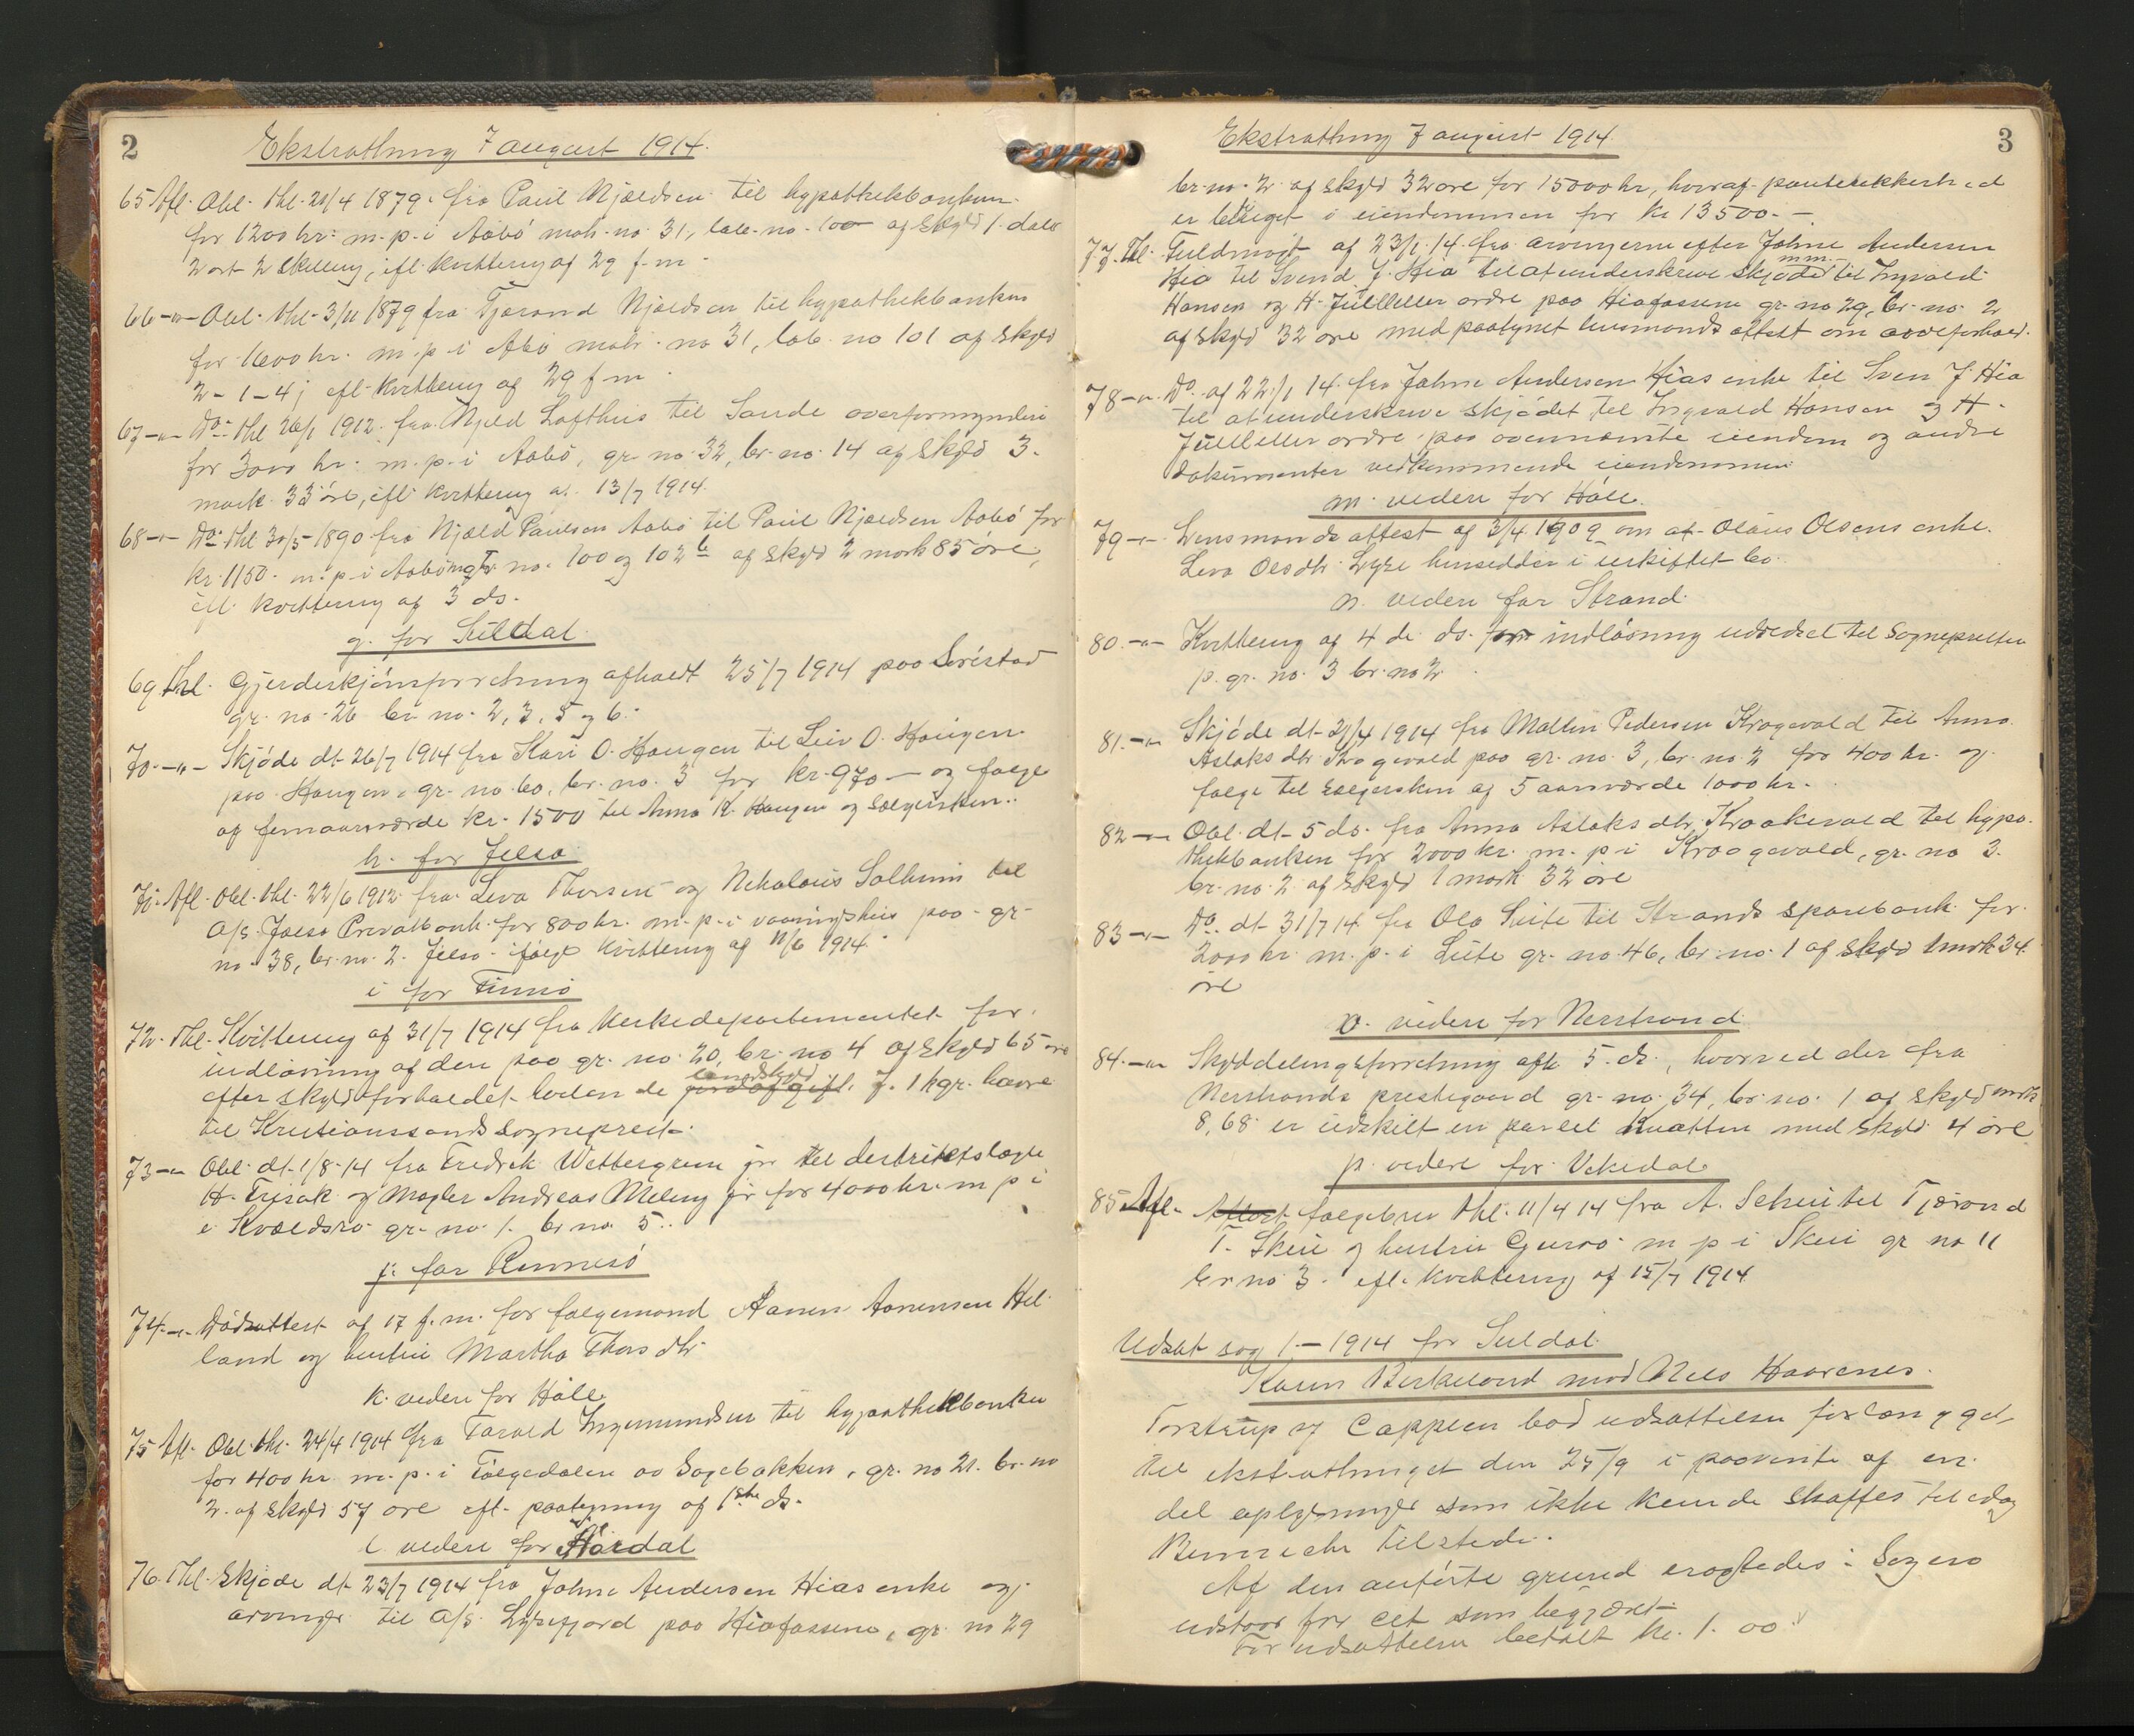 2
Ekstrathing 7 august 1914.
65 Afl. Obl. thl. 21/4 1879. fra Paul Njældsen til hypothekbanken
for 1200 kr: m. p. i Aabö matr. no. 31, løb. no. 100 af skyld 1. daler
2 ort 2 skilling, ifl. kvittering af 29 f. m.
66 -"- Obl. thl. 3/11 1879 fra Tjerand Njældsen til hypothekbanken
for 1600 kr. m. p. i Abö matr. no 31, løb. no 101 af skyld
2 - 1 - 4; efl. kvittering af 29 f m.
67 -"- Do. thl 26/1 1912. fra Njeld Lofthus til Sande overformynderi
for 3000 kr: m. p. i Aabö, gr. no. 32, br. no. 14 af skyld 3.
mark. 33 öre, ifl. kvittering af 13/7 1914.
68 -"- Do. thl 30/5 1890 fra Njæld Paulsen Aabö til Paul Njældsen Aabö for
kr. 1150. m. p. i Aabö no. 100 og 102 b af skyld 2 mark 85 öre,
ifl. kvittering af 3 ds.
g. for Suldal.
69 thl. Gjerdeskjönsforretning afholdt 25/7 1914 paa
gr. no. 26 br. no. 2, 3, 5 og 6.
70. -"- Skjöde dt. 26/7 1914 fra Kari O. Haugen til Leiv O. Haugen
paa Haugen, gr. no. 60, br. no. 3 for kr. 970 - og folge
af femaarsværde kr. 1500 til Anna K. Haugen og Sælgersken.
h. for Jelsa
71. Afl. Obl. thl. 22/6 1912. fra Leva Thorsen og Nikolaus Solheim til
A/S. Jælsa Privatbank for 800 kr. m. p. i vaaningshus paa gr.
no. 38, br. no. 2. Jelsa. ifölge kvittering af 11/6 1914.
i for Finnö
72. thl. Kvittering af 31/7 1914 fra Kirkedepartementet for
indlösning af den paa gr. no. 20, br. no 4 af skyld 65 öre
landskyld
efter skyldforholdet hvilende jordafgift. 7. 1 kgr. havre
til Kristianssands sogneprest.
73 -"- Obl. dt. 1/8-14 fra Fredrik Wettergren jr til destriktslæge
H. Frisak og Mægler Andreas Meling jr for 4000 kr. m p i
i Kvældsro gr. no. 1. br no. 5.
j. for Rennesö
74. -"- Dödsattest af 17 f. m. for folgemand Aanen Aanensen Hel-
land og hustru Martha Thorsdtr.
k. videre for Hölle
75 Afl. Obl. thl. 24/4 1914 fra Torvald Ingemundsen til hypothekbanken
for 400 kr. m. p. i Tælgedalen og Sagebakken, gr. no 21. br. no
2. af skyld 57 öre efl. paategning af 1ste ds.
l. videre for Aardal
76. Thl. Skjöde dt. 23/7 1914 fra Johne Andersen Hias enke og
arvinger til A/S. Lysefjord paa Hiafossene, gr. no 29
3
Ekstrathing 7 august 1914.
br. no. 2. af skyld 32 öre for 15000 kr, hvoraf pantesikkerhed
er betinget i eiendommen for kr 13500. -
77. Thl. Fuldmagt af 23/1. 14. fra arvingerne efter Johne Andersen
m m.
Hia til Svend J. Hia til at underskrive skjöde til Ingvald
Hansen og H. Jüll eller ordre paa Hiafossene gr. no 29, br. no. 2
af skyld 32 öre med paategnet lensmandsattest om arveforhold.
78 -"- Do. af 22/1 14. fra Johne Andersen Hias enke til Sven J. Hia
til at underskrive skjödet til Ingvald Hansen og H.
Jüll eller ordre paa ovennævnte eiendom og andre
dokumenter vedkommende eiendommen
m. videre for Hölle.
79 -"- Lensmandsattest af 3/4. 1909 om at Olaus Olsens enke.
Leva Olsdtr. Lyse hensidder i uskiftet bo.
n. videre for Strand.
80. -"- Kvittering af 4 de ds. for indlösning udstedet til Sognepresten
p. gr. no. 3 br. no 2.
81. -"- Skjöde dt. 21/4 1914 fra Mallin Pedersen Krogevold til Anna
Aslaksdtr. Krogevold paa gr. no. 3, br. no. 2 for 400 kr. og
folge til sælgersken af 5 aarsværde 1000 kr.
82 -"- Obl. dt. 5 ds. fra Anna Aslaksdtr. Kraakevold til hypo-
thekbanken for 2000 kr. m. p i Kraagevold, gr. no 3.
br. no. 2 af skyld 1 mark 32 öre
83 -"- Do. dt. 31/7 14 fra Ola Lute til Strands sparebank for
2000 kr. m. p. i Lute gr. no. 46, br. no. 1 af skyld 1 mark 34
öre
o. videre for Nerstrand
84. -"- Skylddelingsforretning afh 5. ds., hvorved der fra
Nerstrands prestegaard gr. no. 34, br. no. 1 af skyld mark
8,68. er udskilt en parcel Knatten med skyld 4 öre.
p. videre for Vikedal
85 Afl. folgebrev thl. 11/4 14 fra A. Skeie til Tjærand
T. Skeie og hustru Guroo m p i Skeie gr no 11
br no 3. efl. kvittering af 15/7 1914
Udsat sag 1 - 1914 for Suldal
Karen Birkeland mod Nels Haavenes.
Torstrup og Cappelen bad udsættelsen forlænget
til ekstrathinget den 25/9 i paavente af en
del oplysninger som ikke kunde skaffes til idag
tilstede.
Af den anförte grund eragtedes: Sagen
udstaar for det som begjæret.
For udsættelsen betalt kr. 1. 00.